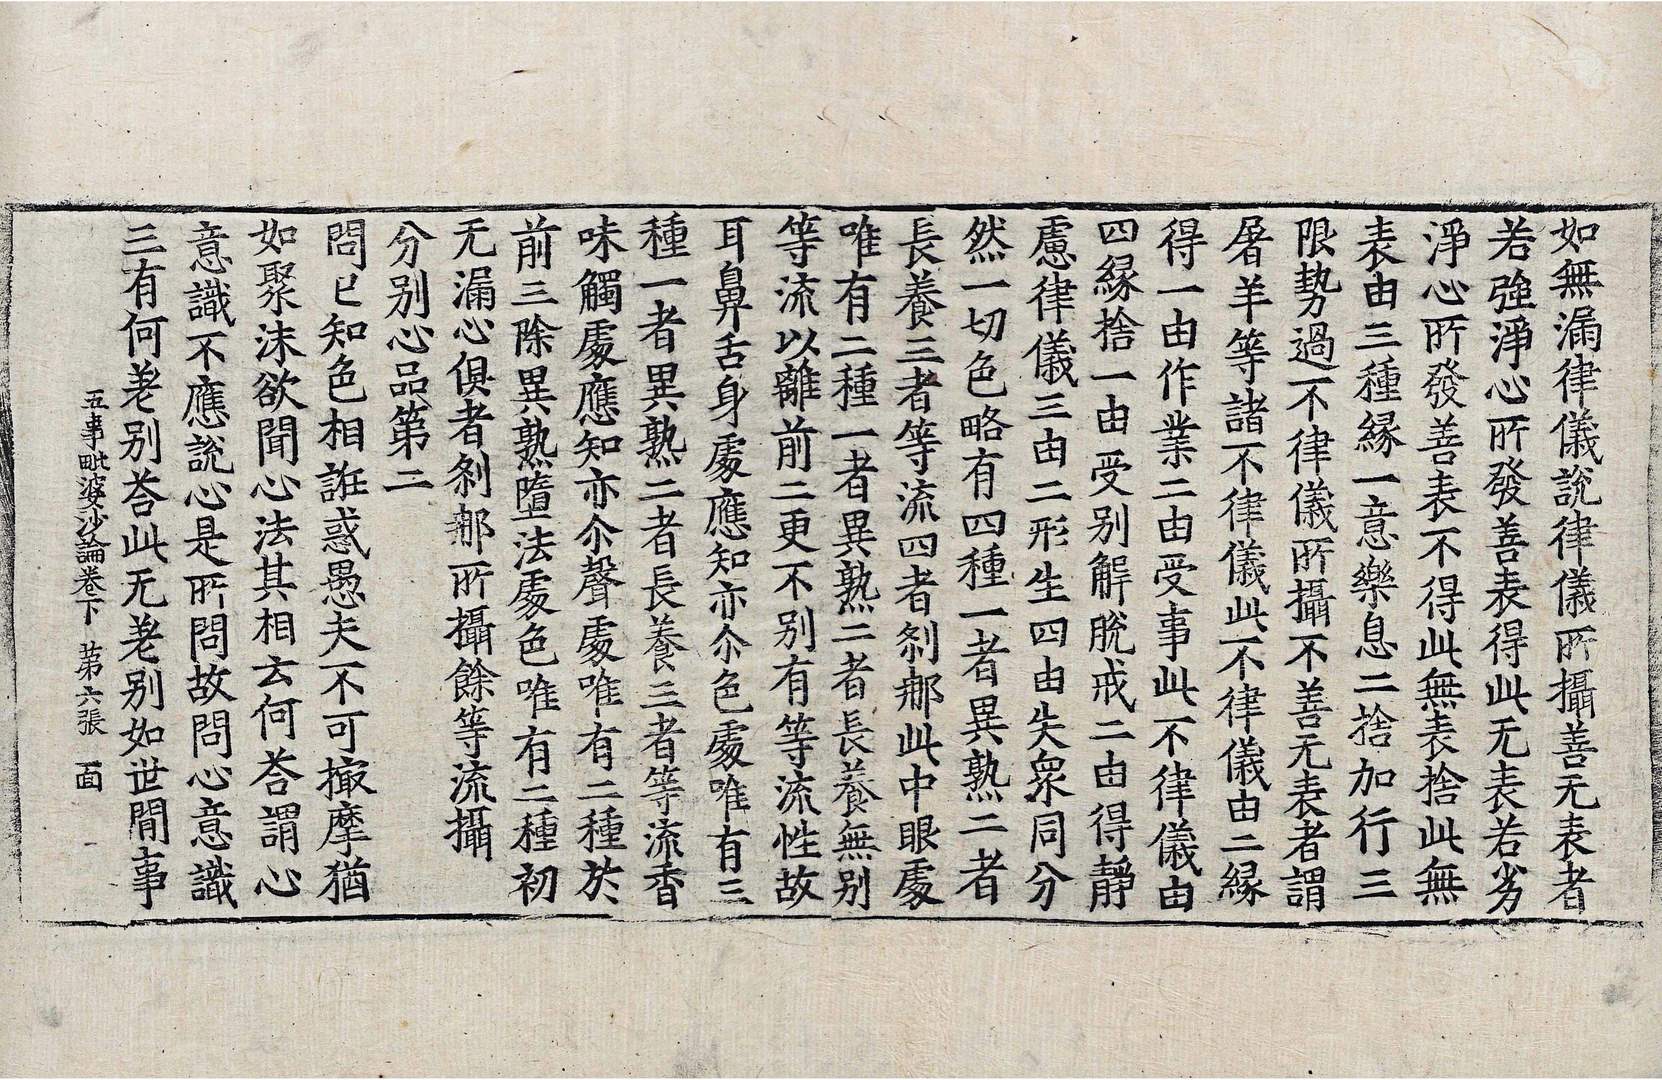 如無漏律儀說律儀所攝善无表者
若強淨心所發善表得此无表若劣
淨心所發善表不得此無表捨此無
表由三種縁一意樂息二捨加行三
限勢過不律儀所攝不善无表者謂
屠羊等諸不律儀此不律儀由二縁
得一由作業二由受事此不律儀由
四縁捨一由受别解脫戒二由得靜
慮律儀三由二形生四由失衆同分
然一切色略有四種一者異熟二者
長養三者等流四者刹那此中眼處
唯有二種一者異熟二者長養無别
等流以離前二更不别有等流性故
耳鼻舌身處應知亦尒色處唯有三
種一者異熟二者長養三者等流香
味觸處應知亦尒聲處唯有二種於
前三除異熟墮法處色唯有二種初
无漏心俱者刹那所攝餘等流攝
分别心品第二
問已知色相誑惑愚夫不可撮摩猶
如聚沫欲聞心法其相云何荅謂心
意識不應說心是所問故問心意識
三有何差别荅此无差别如世間事
五事毗婆沙論卷下 第六張 面